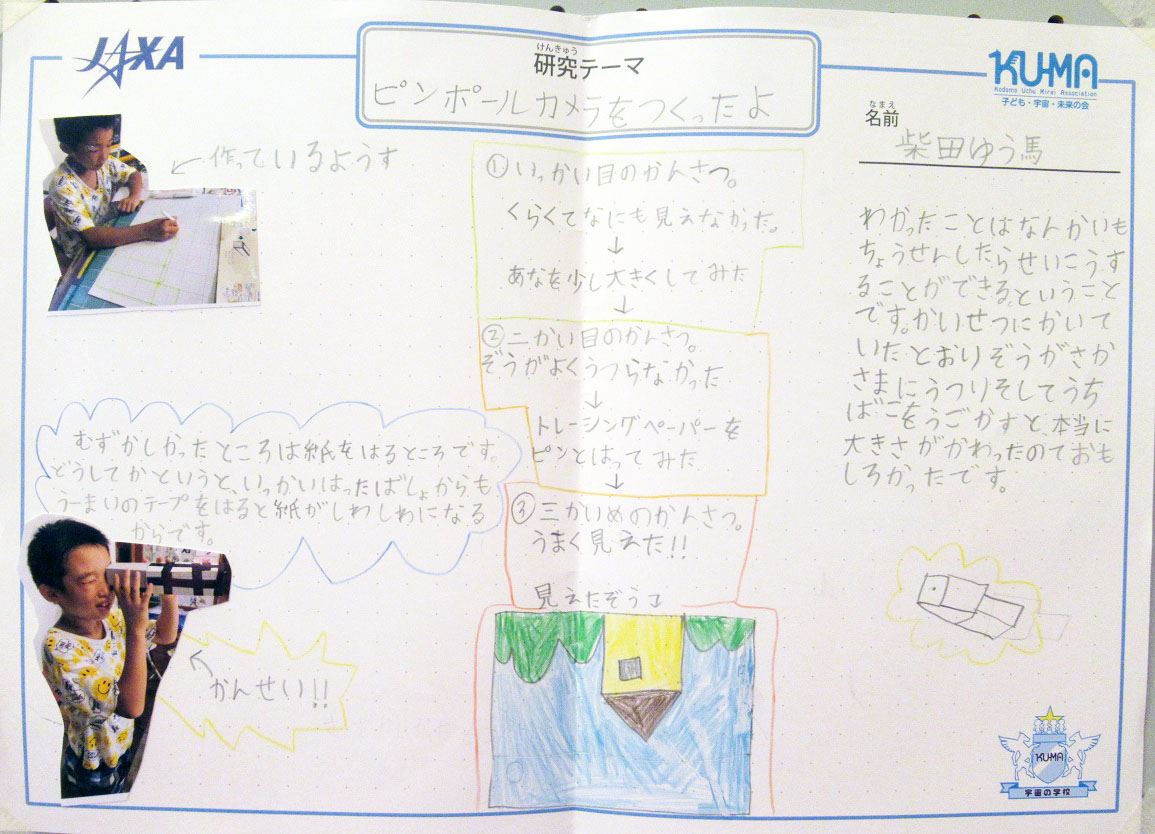 JAXA
けんきゅう
研究テーマ
ピンポールカメラをつくったよ
KU-MA
Kodomo Uchu Mirai Association
子ども・宇宙・未来の会
なまえ
名前
柴田ゆう馬
作っているようす
①いっかい目のかんさつ。
くらくてなにも見えなかった。
↓
あなを少し大きくしてみた
↓
②二かい目のかんさつ。
ぞうがよくうつらなかった
↓
トレーシングペーパーを
ピンとはってみた
↓
③三かいめのかんさつ。
うまく見えた!!
見えたぞう↓
むずかしかったところは紙をはるところです。
どうしてかというと、いっかいはったばしょからも
うーまいのテープをはると紙がしわしわになる
からです。
かんせい!!
わかったことはなんかいも
ちょうせんしたらせいこうす
ることができる。ということ
です。かいせつにかいて
いたとおりぞうがさか
さまにうつりそしてうち
ばこをうごかすと、本当に
大きさがかわったのておも
しろかったです。
KU-MA
宇宙の学校